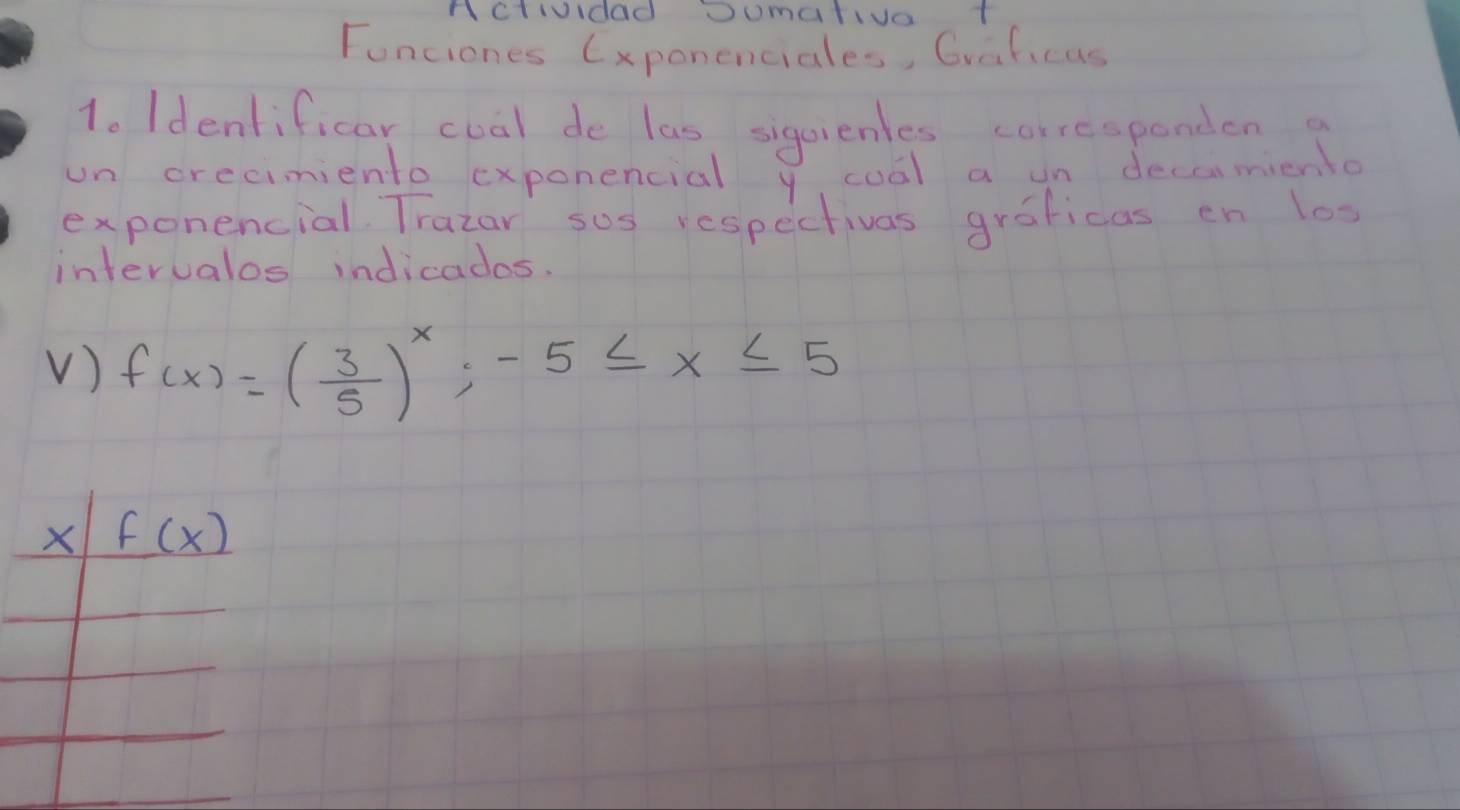 Actividad Sumativa 1
Funciones Exponenciales, Gráficas
1. Identificar cuál de las siguientes corresponden a
un crecimiento exponencial y cuál a un decaimiento
exponencial. Trazar sus respectivas gráficas en los
intervalos indicados.
V) f(x) = (3/5)^x ; -5 ≤ x ≤ 5
x f(x)